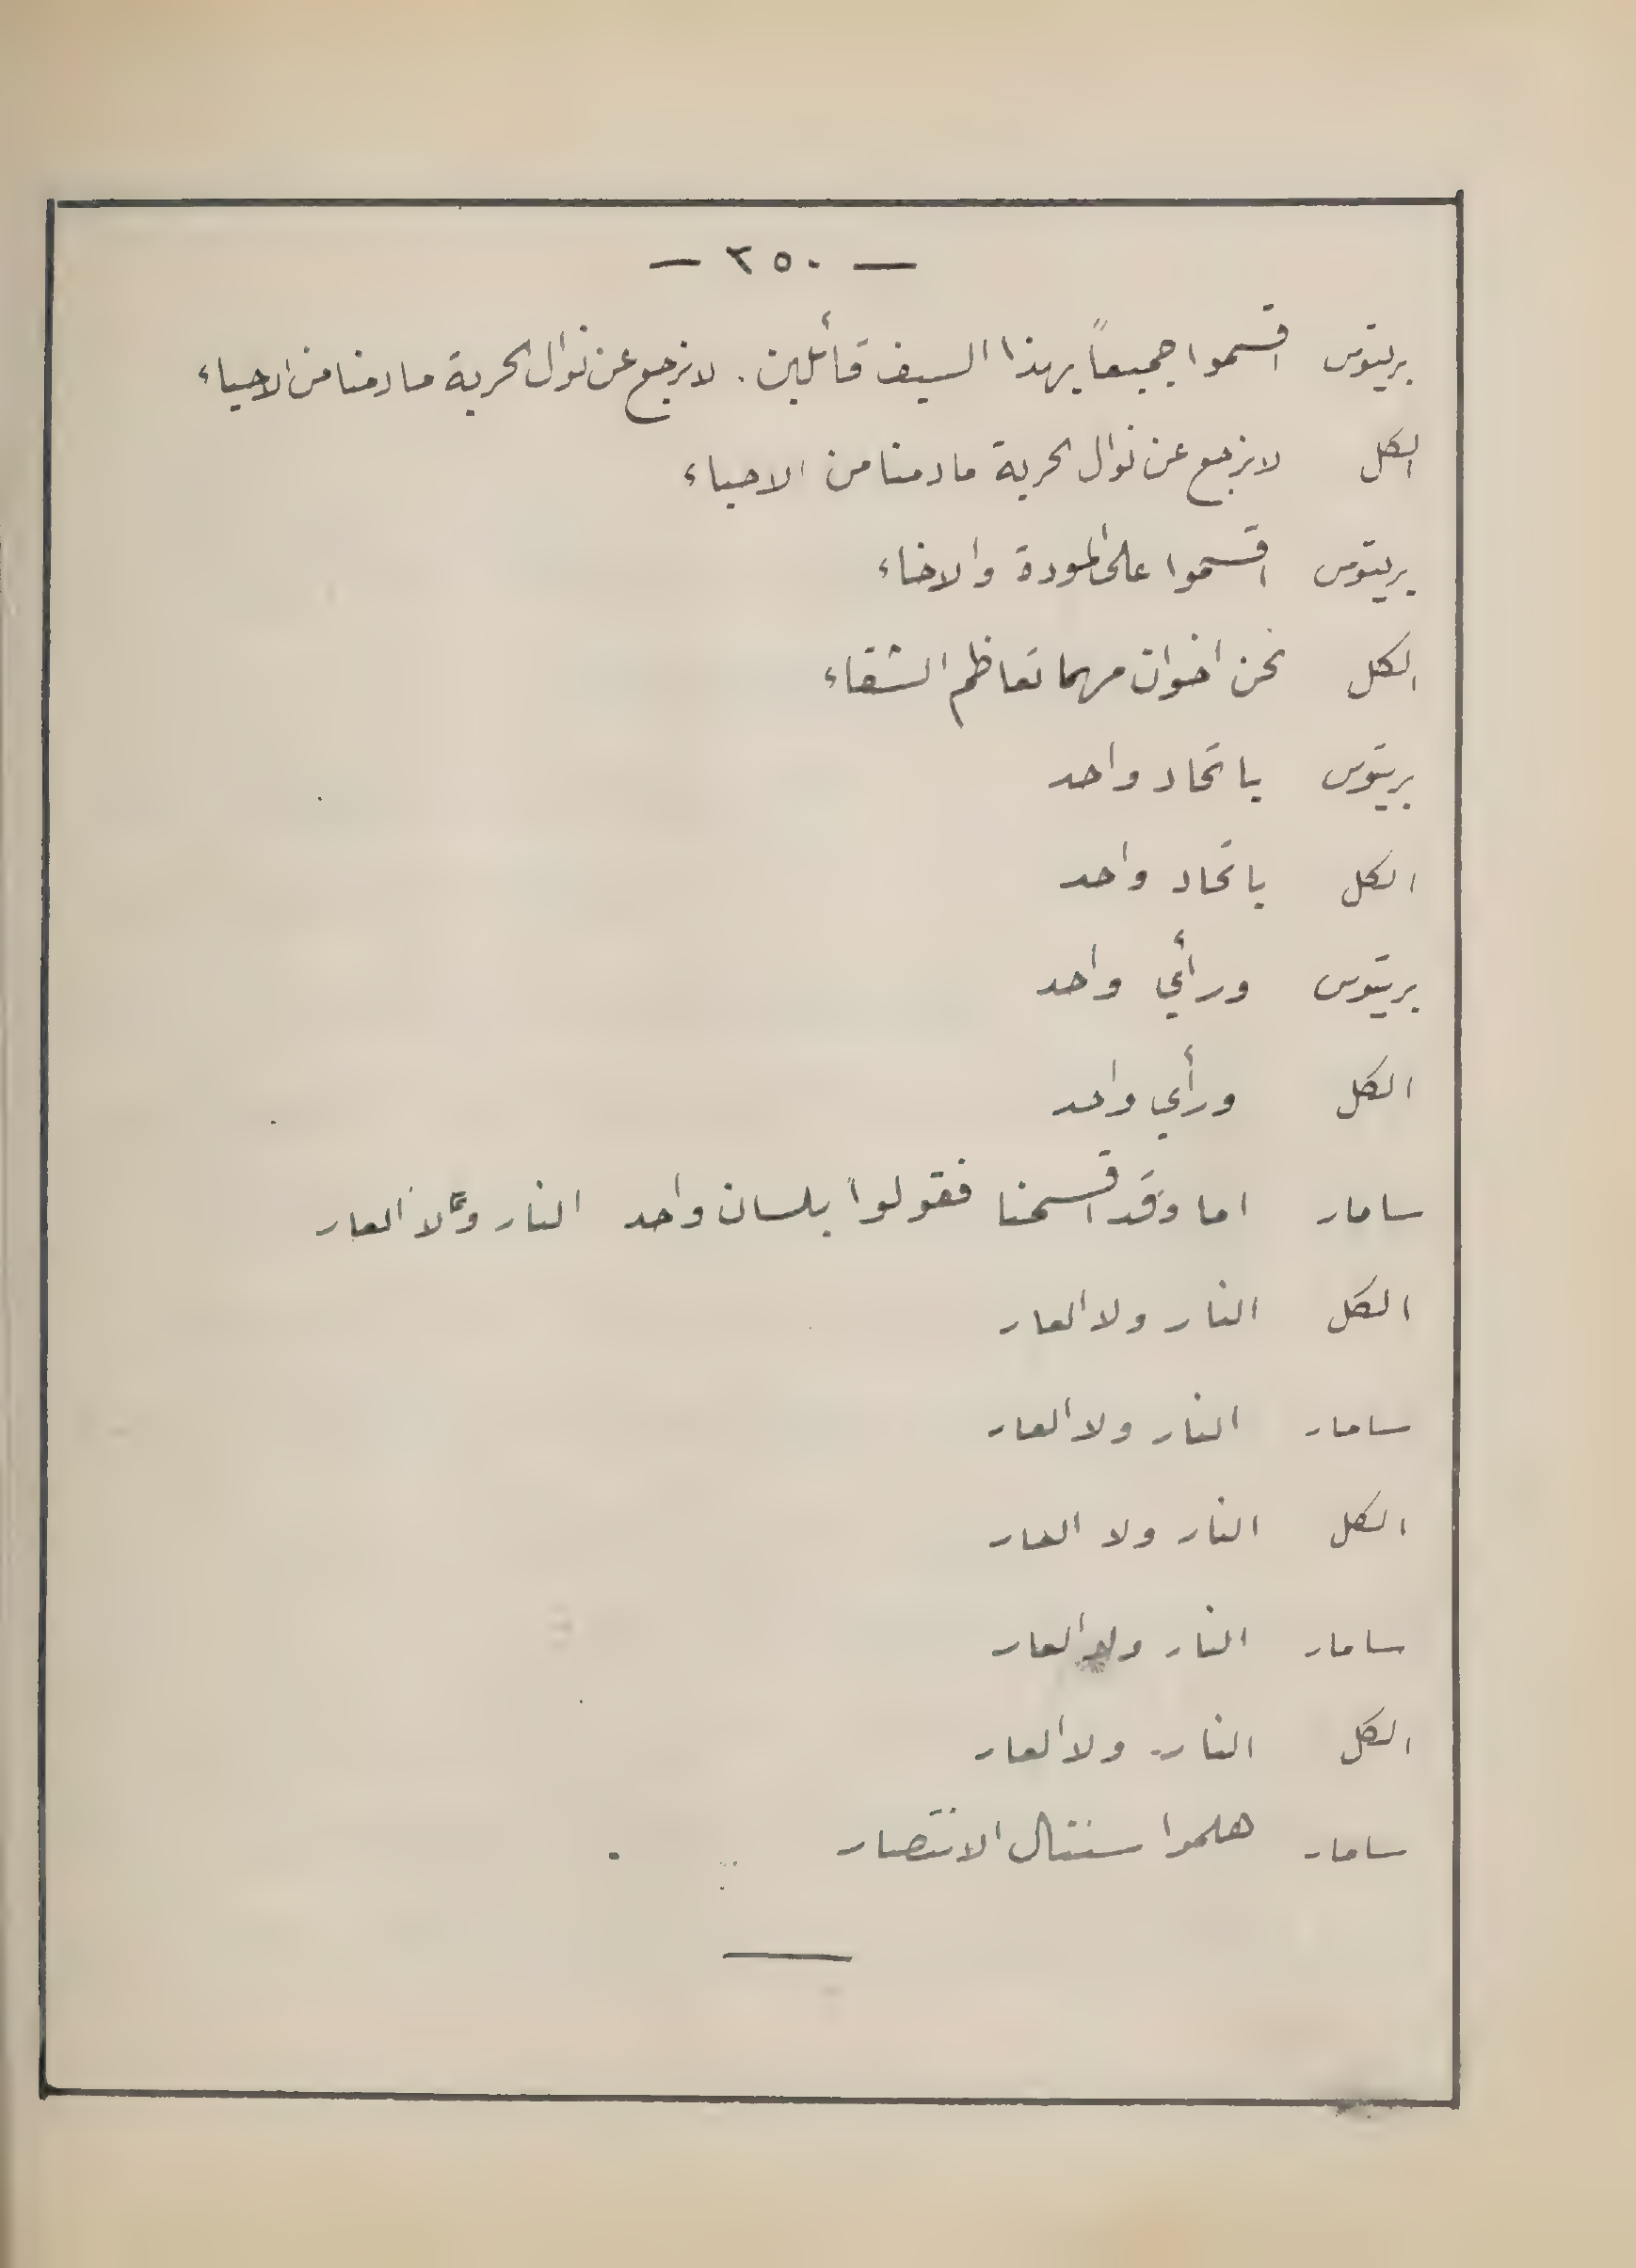 — ٢٥٠ —
بريتوس اقسموا جميعاً بهذا السيف قائلين . لا نرجع عن نوال الحرية ما دمنا من الاحياء
الكل لا نرجع عن نوال الحرية ما دمنا من الاحياء
بريتوس اقسموا على المودة والاخاء
الكل نحن اخوان مهما تعاظم الشقاء
بريتوس باتحاد واحد
الكل باتحاد واحد
بريتوس ورأي واحد
الكل ورأي واحد
سامار اما وقد اقسمنا فقولوا بلسان واحد النار ولا العار
الكل النار ولا العار
سامار النار ولا العار
الكل النار ولا العار
سامار النار ولا العار
الكل النار ولا العار
سامار هلموا سننال الانتصار .